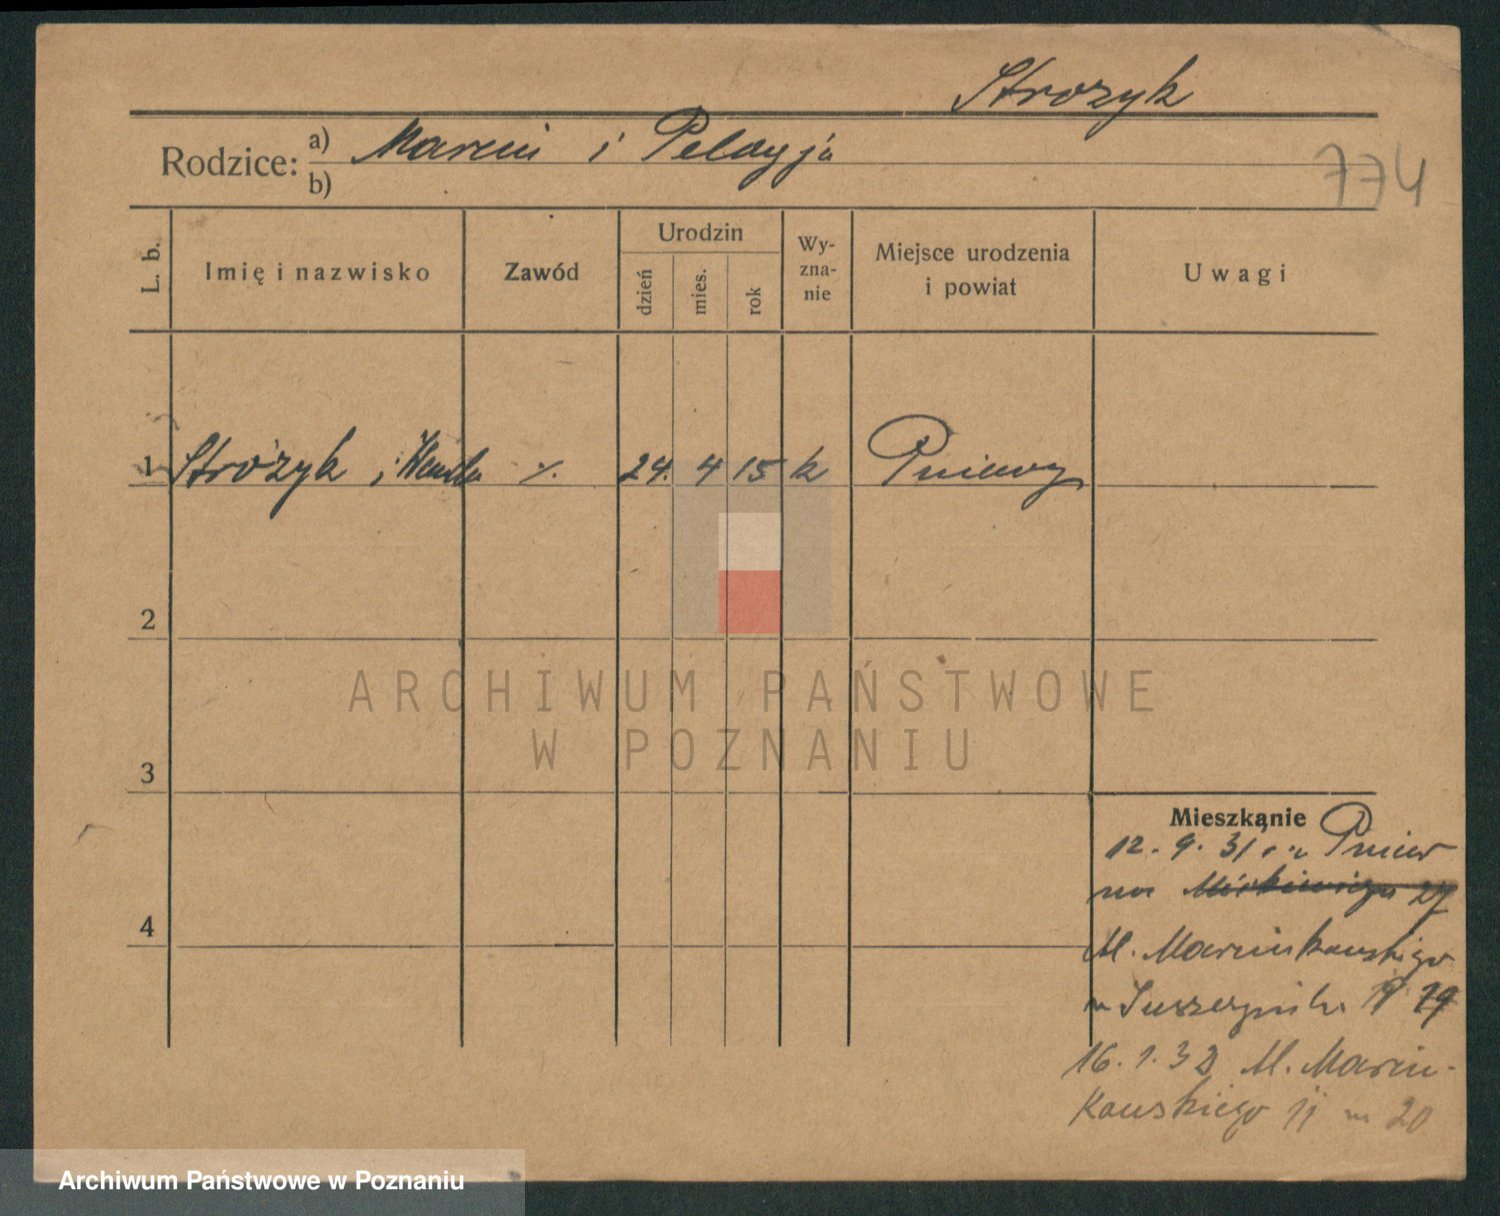 Strozyk
Rodzice: a) Marcin i Pelagja
b)
774
L. b.
Imię i nazwisko
Zawód
Urodzin
dzień
mies.
rok
Wy-
zna-
nie
Miejsce urodzenia
i powiat
Uwagi
1 Stróżyk, Wanda ·/. 24. 4 15 k Pniewy
2
3
4
ARCHIWUM PAŃSTWOWE
W POZNANIU
Mieszkanie
12. 9. 31 Pniew
27
M. Marcinkowskiego
19
16. 1. 32 M. Marcin-
kowskiego 11 m 20
Archiwum Państwowe w Poznaniu